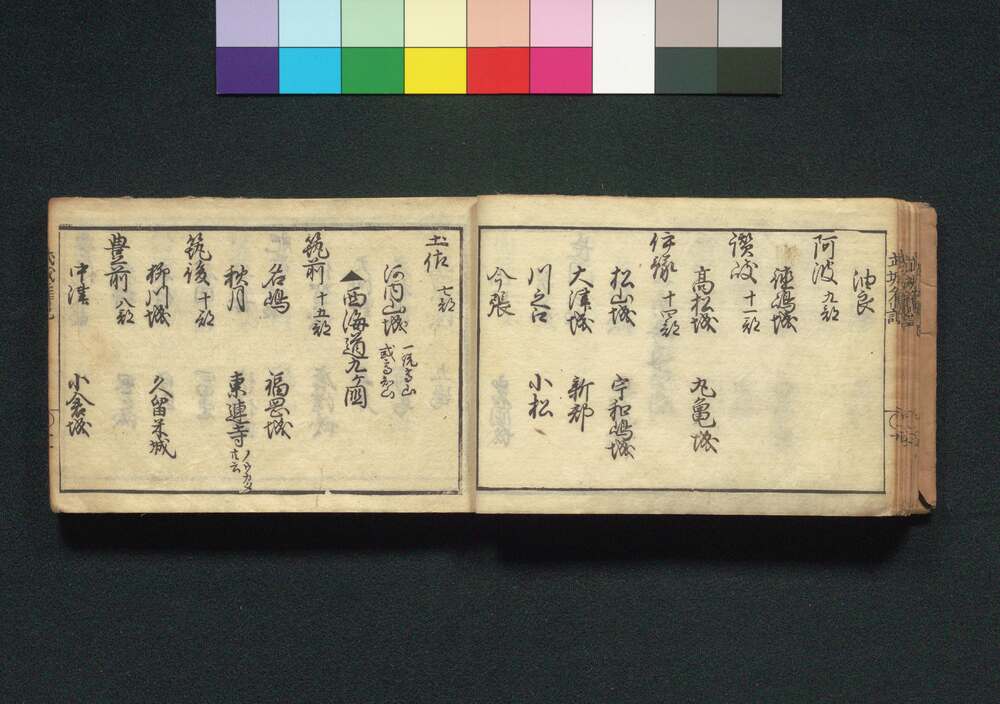 油良
阿波 九郡
徳嶋城
讃岐 十一郡
髙松城 丸亀城
伊豫 十四郡
松山城 宇和嶋城
大津城 新郡
川之口 小松
今張
土佐 七郡
河内山城 一説高山
▲西海道九ヶ国
筑前 十五郡
名嶋 福岡城
秋月 東連寺
筑後 十郡
柳川城 久留米城
豊前 八郡
中津 小倉城